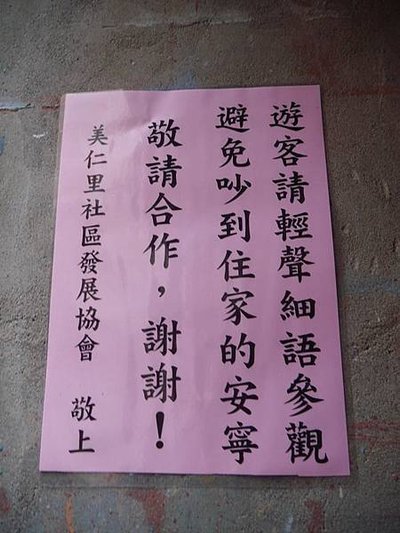 遊客請輕聲細語參觀
避免吵到住家的安寧
敬請合作，謝謝！
美仁里社區發展協會 敬上